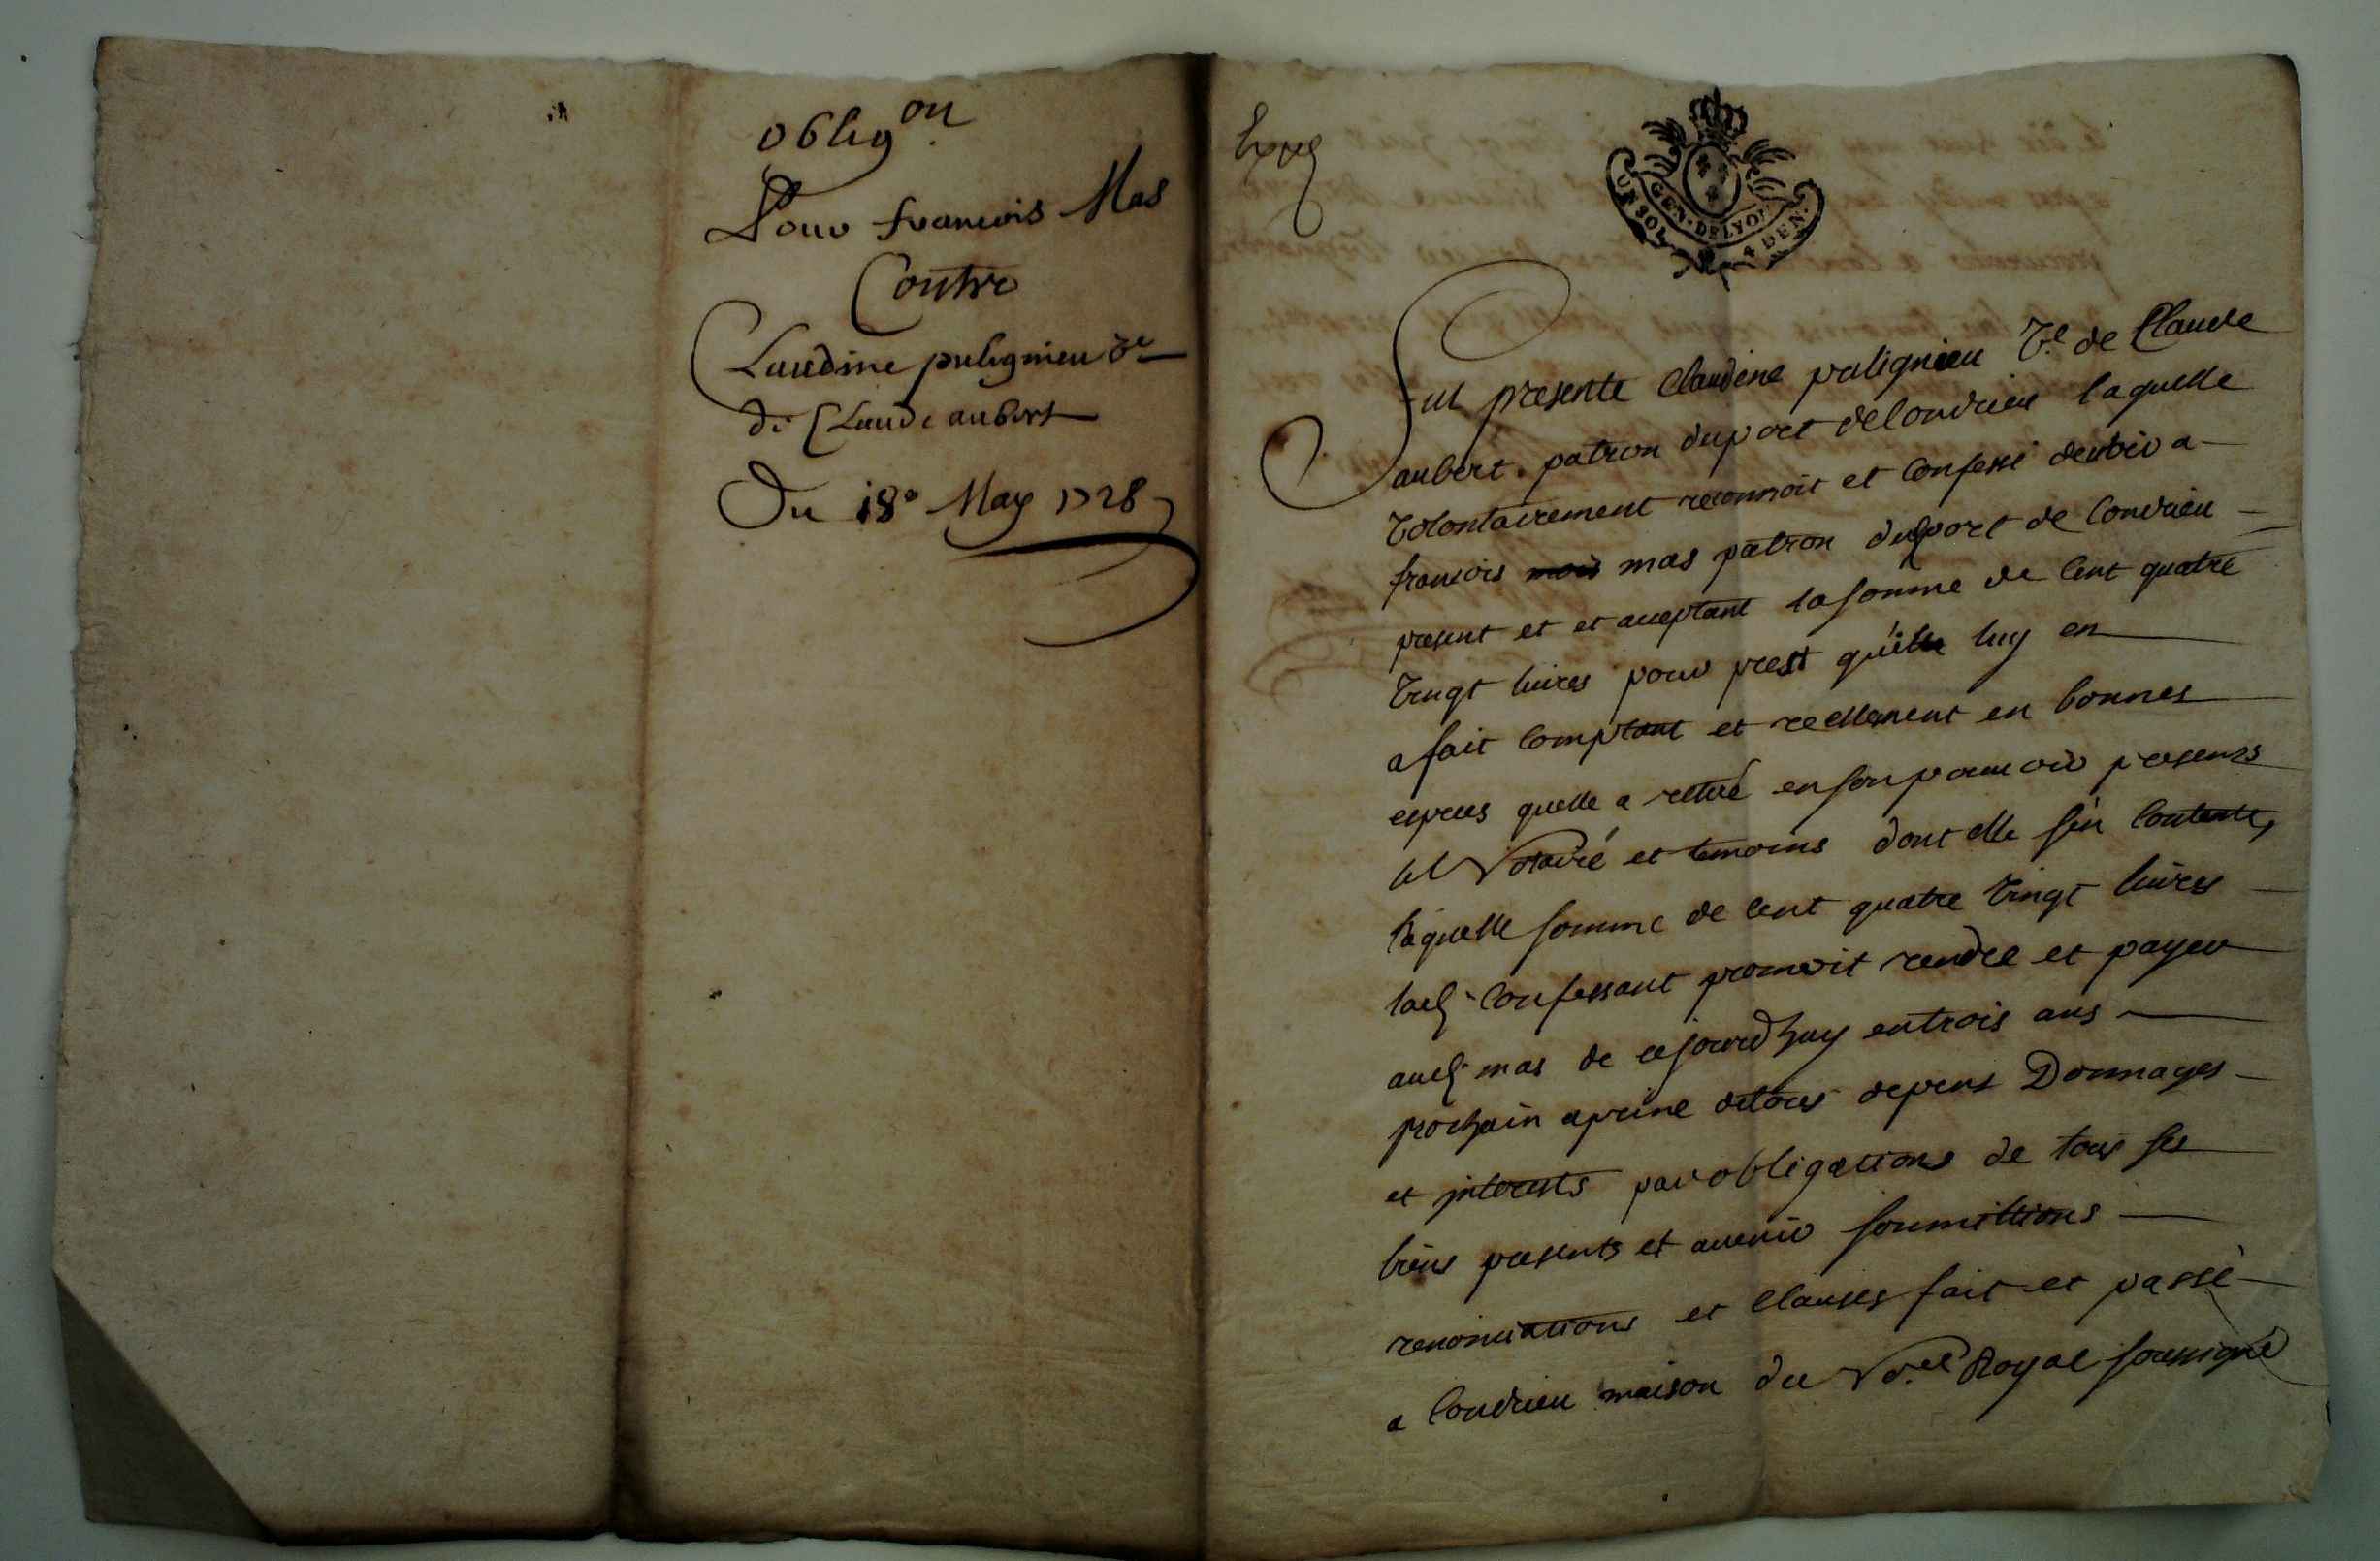 oblig.on
Pour francois Mas
Contre
Claudine pulignieu ve
de Claude aubert
Du 18e May 1728
Expé
UN SOL GEN. DE LYON 4 DEN.
fut presente Claudine pulignieu Ve. de Claude
aubert patron du port de Condrieu laquelle
volontairement reconnoit et confesse debvoir a
francois mois mas patron dud port de Condrieu
present et et acceptant la somme de Cent quatre
vingt livres pour prest qu'il luy en
a fait comptant et reellement en bonnes
espèces quelle a retiré en son pouvoir presents
les Notaire et temoins dont elle s'en contente,
laquelle somme de cent quatre vingt livres
lad. Confessant promeit rendre et payer
aud. mas de cejourdhuy en trois ans
prochain a peine de tous depens Dommages
et interests par obligations de tous ses
biens presents et avenir soumittions
renonciations et Clauses fait et passé
a Condrieu maison du No.re Royal soussigné